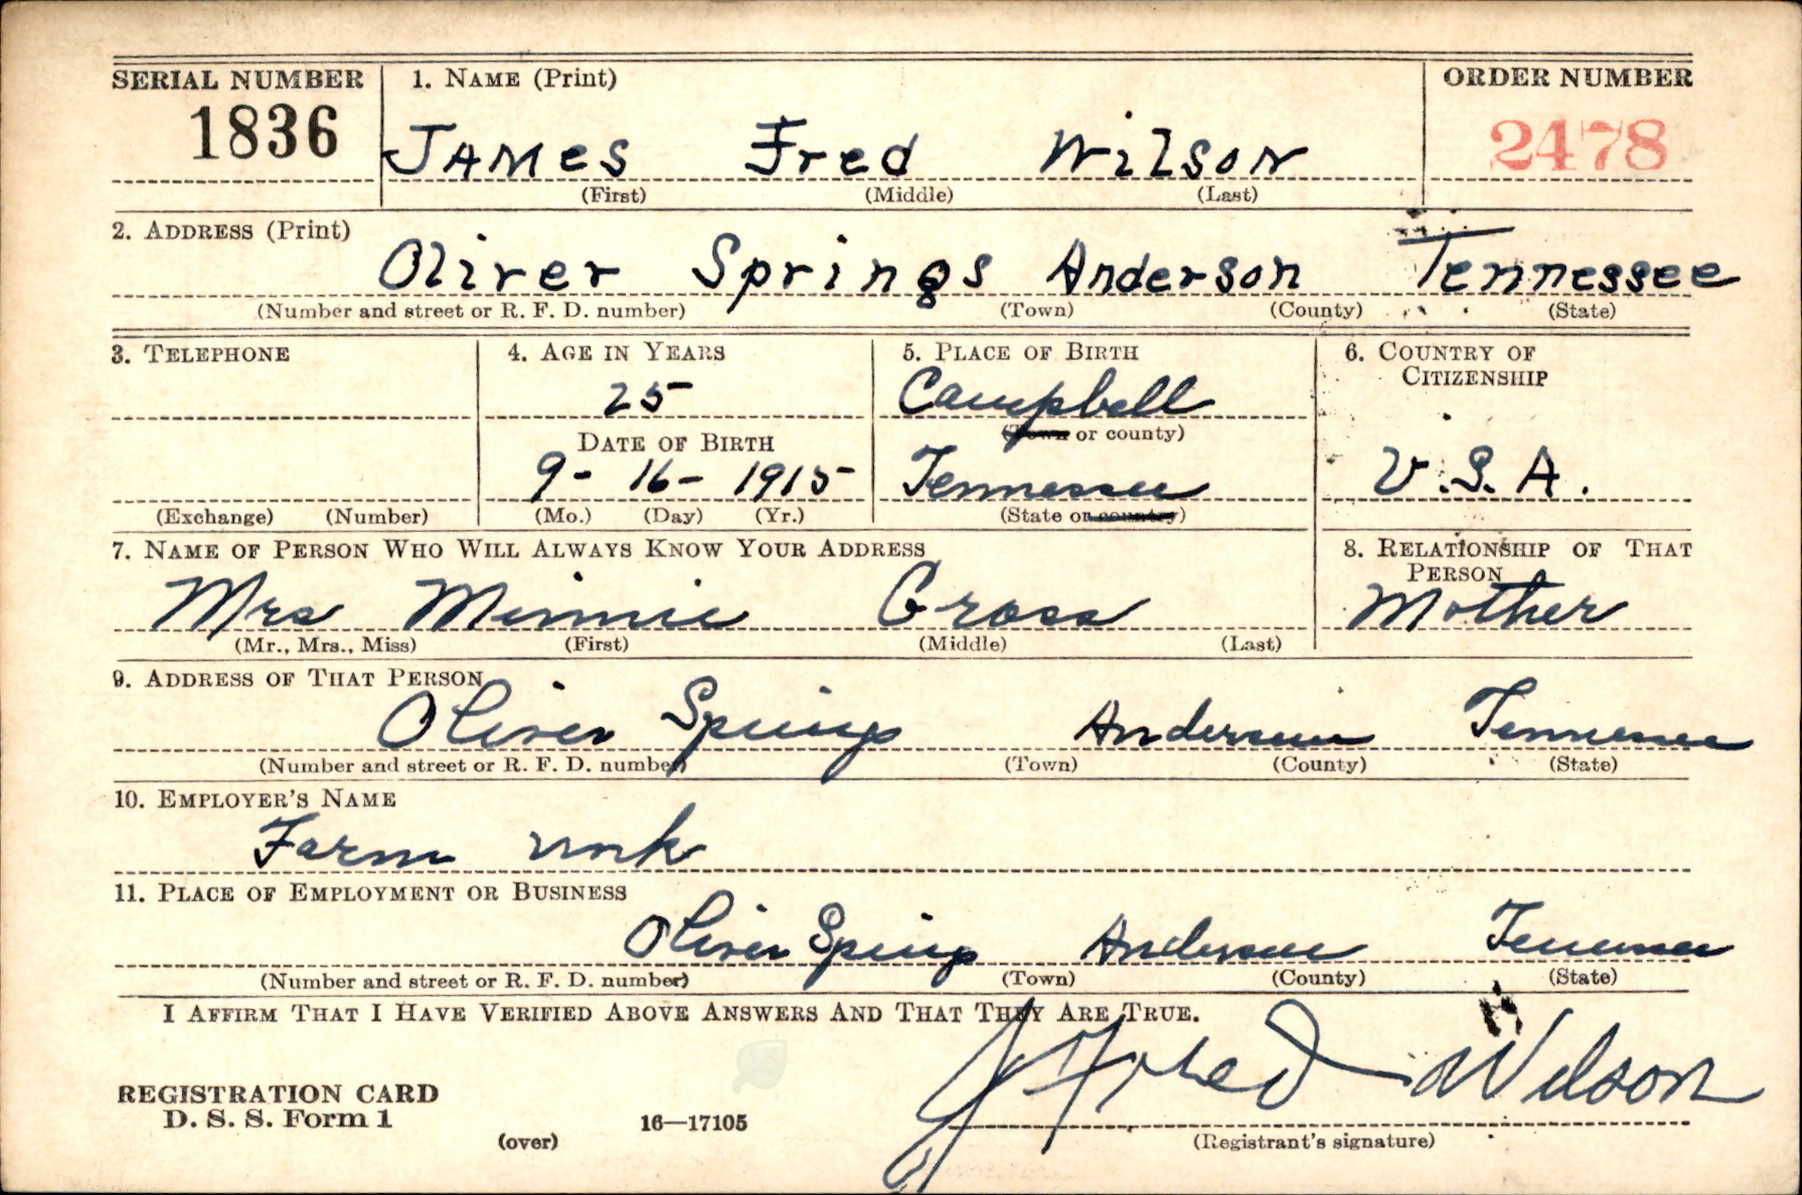 SERIAL NUMBER 1. NAME (Print) ORDER NUMBER
1836 JAMes Fred Wilson 2478
(First) (Middle) (Last)
2. ADDRESS (Print)
Oliver Springs Anderson Tennessee
(Number and street or R. F. D. number) (Town) (County) (State)
3. TELEPHONE 4. AGE IN YEARS 5. PLACE OF BIRTH 6. COUNTRY OF
CITIZENSHIP
25 Campbell
DATE OF BIRTH (Town or county)
9- 16- 1915 Tennessee U.S.A.
(Exchange) (Number) (Mo.) (Day) (Yr.) (State or country)
7. NAME OF PERSON WHO WILL ALWAYS KNOW YOUR ADDRESS 8. RELATIONSHIP OF THAT
PERSON
Mrs Minnie Cross Mother
(Mr., Mrs., Miss) (First) (Middle) (Last)
9. ADDRESS OF THAT PERSON
Oliver Springs Anderson Tennessee
(Number and street or R. F. D. number) (Town) (County) (State)
10. EMPLOYER'S NAME
Farm work
11. PLACE OF EMPLOYMENT OR BUSINESS
Oliver Springs Anderson Tennessee
(Number and street or R. F. D. number) (Town) (County) (State)
I AFFIRM THAT I HAVE VERIFIED ABOVE ANSWERS AND THAT THEY ARE TRUE.
J Fred Wilson
REGISTRATION CARD
D. S. S. Form 1 16—17105
(over) (Registrant's signature)